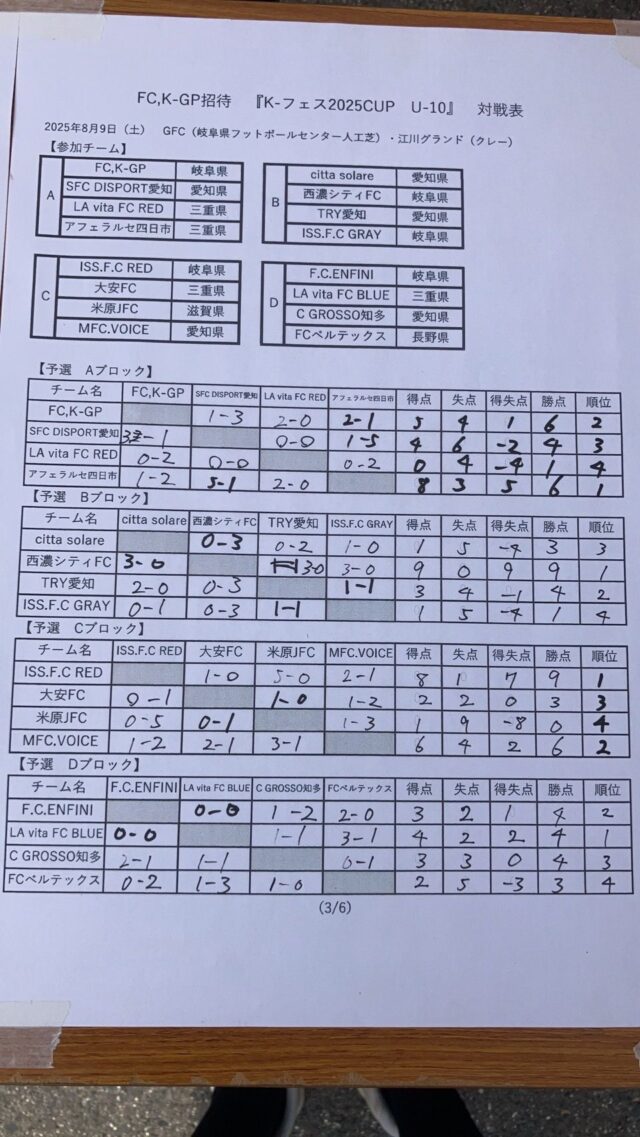 FC,K-GP招待 『K-フェス2025CUP U-10』 対戦表
2025年8月9日（土） GFC（岐阜県フットボールセンター人工芝）・江川グランド（クレー）
【参加チーム】
A
FC,K-GP 岐阜県
SFC DISPORT愛知 愛知県
LA vita FC RED 三重県
アフェラルセ四日市 三重県
B
citta solare 愛知県
西濃シティFC 岐阜県
TRY愛知 愛知県
ISS.F.C GRAY 岐阜県
C
ISS.F.C RED 岐阜県
大安FC 三重県
米原JFC 滋賀県
MFC.VOICE 愛知県
D
F.C.ENFINI 岐阜県
LA vita FC BLUE 三重県
C GROSSO知多 愛知県
FCベルテックス 長野県
【予選 Aブロック】
チーム名 FC,K-GP SFC DISPORT愛知 LA vita FC RED アフェラルセ四日市 得点 失点 得失点 勝点 順位
FC,K-GP 1-3 2-0 2-1 5 4 1 6 2
SFC DISPORT愛知 3-1 0-0 1-5 4 6 -2 4 3
LA vita FC RED 0-2 0-0 0-2 0 4 -4 1 4
アフェラルセ四日市 1-2 5-1 2-0 8 3 5 6 1
【予選 Bブロック】
チーム名 citta solare 西濃シティFC TRY愛知 ISS.F.C GRAY 得点 失点 得失点 勝点 順位
citta solare 0-3 0-2 1-0 1 5 -4 3 3
西濃シティFC 3-0 3-0 3-0 9 0 9 9 1
TRY愛知 2-0 0-3 1-1 3 4 -1 4 2
ISS.F.C GRAY 0-1 0-3 1-1 1 5 -4 1 4
【予選 Cブロック】
チーム名 ISS.F.C RED 大安FC 米原JFC MFC.VOICE 得点 失点 得失点 勝点 順位
ISS.F.C RED 1-0 5-0 2-1 8 1 7 9 1
大安FC 0-1 1-0 1-2 2 2 0 3 3
米原JFC 0-5 0-1 1-3 1 9 -8 0 4
MFC.VOICE 1-2 2-1 3-1 6 4 2 6 2
【予選 Dブロック】
チーム名 F.C.ENFINI LA vita FC BLUE C GROSSO知多 FCベルテックス 得点 失点 得失点 勝点 順位
F.C.ENFINI 0-0 1-2 2-0 3 2 1 4 2
LA vita FC BLUE 0-0 1-1 3-1 4 2 2 4 1
C GROSSO知多 2-1 1-1 0-1 3 3 0 4 3
FCベルテックス 0-2 1-3 1-0 2 5 -3 3 4
(3/6)